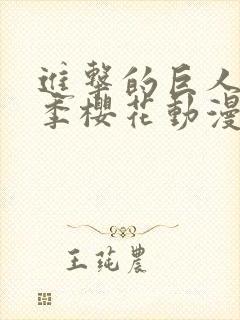 進撃的巨人
季櫻花動漫
王莼農